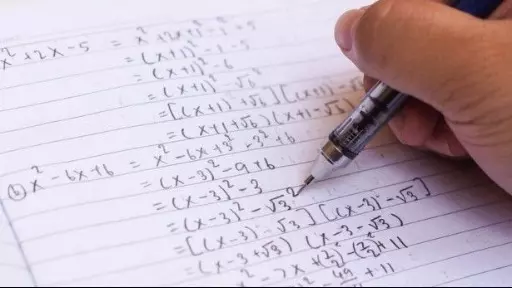 x²+2x-5 = x²+2x+1²-1²-5
= (x+1)²-1-5
= (x+1)²-6
= (x+1)²-√6²
= [(x+1)+√6][(x+1)-
= (x+1+√6)(x+1-√6)
(b) x²-6x+6 = x²-6x+3²-3²+6
= (x-3)²-9+6
= (x-3)²-3
= (x-3)²-√3²
= [(x-3)+√3][(x-3)-√3]
= (x-3+√3)(x-3-√3)
x²-7x+(7/2)²-(7/2)²+11
49/4+11